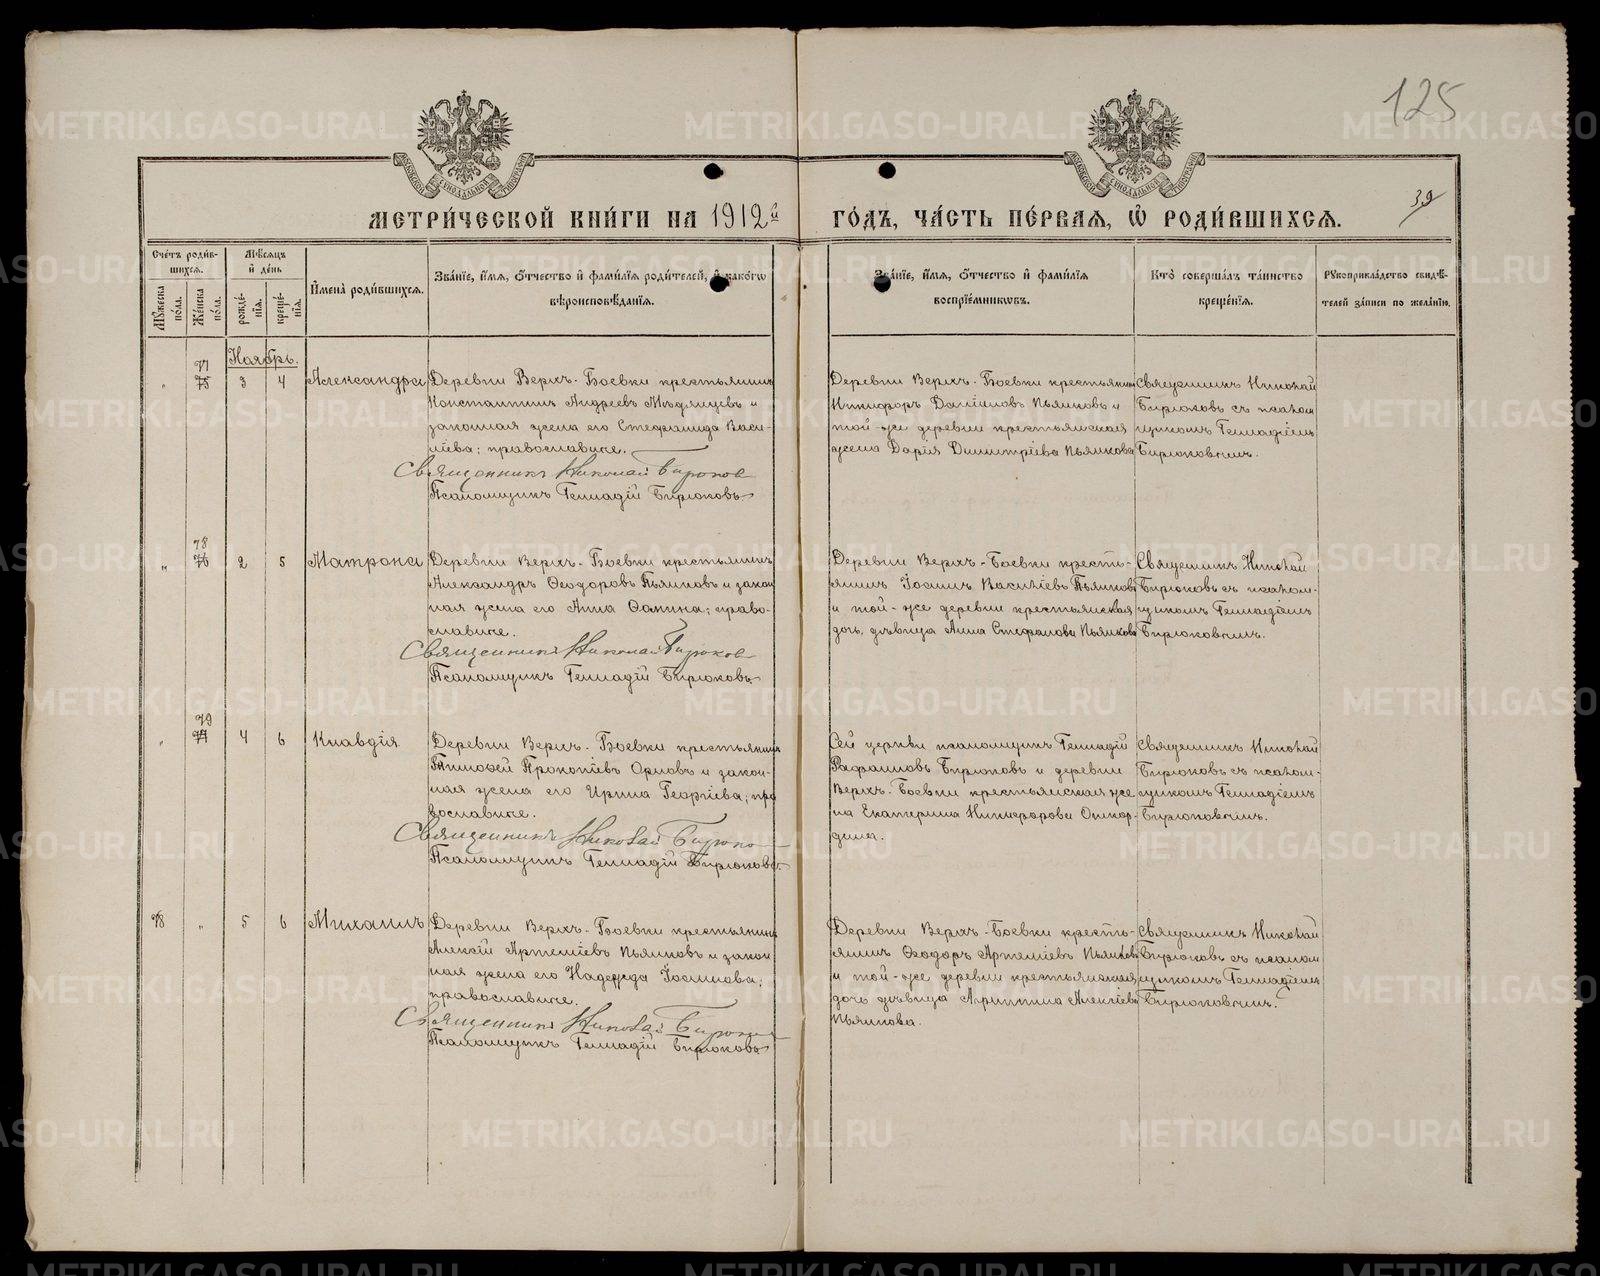 125
39
МЕТРИ́ЧЕСКОЙ КНИ́ГИ НА 1912й ГО́ДЪ, ЧА́СТЬ ПЕ́РВАЯ, Ѡ РОДИ́ВШИХСѦ.
Сче́тъ роди́в-
шихсѧ.
Мꙋжеска по́ла.
Же́нска по́ла.
Мѣ́сѧцъ
и́ де́нь
рожде́-нїѧ.
креще́-нїѧ.
И҆мена̀ роди́вшихсѧ.
Зва́нїе, и҆́мѧ, ѻ҆́тчество и҆ фами́лїѧ роди́телей, и҆ како́гѡ
вѣроисповѣ́данїѧ.
Зва́нїе, и҆́мѧ, ѻ҆́тчество и҆ фами́лїѧ
воспрїе́мникѡвъ.
Кто̀ соверша́лъ та́инство
креще́нїѧ.
Рꙋкоприкла́дство свидѣ́-
телей за́писи по жела́нїю.
Ноябрь.
77
75 3 4 Александра
Деревни Верхъ-Боевки крестьянинъ
Константинъ Андреевъ Мѣдянцевъ и
законная жена его Стефанида Васи-
лiева; православные.
Священникъ Николай Бирюков
Псаломщикъ Геннадiй Бирюковъ
Деревни Верхъ-Боевки крестьянинъ
Никифоръ Данiиловъ Пьянковъ и
той-же деревни крестьянская
жена Дарiя Димитрiева Пьянкова
Священникъ Николай
Бирюковъ съ псалом
щикомъ Геннадiемъ
Бирюковымъ.
78
76 2 5 Матрона
Деревни Верхъ-Боевки крестьянинъ
Александръ Ѳеодоровъ Пьянковъ и закон
ная жена его Анна Ѳомина; право-
славные.
Священникъ Николай Бирюков
Псаломщикъ Геннадiй Бирюковъ
Деревни Верхъ-Боевки кресть-
янинъ Iосифъ Васильевъ Пьянковъ
и той-же деревни крестьянская
дочь, дѣвица Анна Стефанова Пьянкова
Священникъ Николай
Бирюковъ съ псалом-
щикомъ Геннадiемъ
Бирюковымъ.
79
77 4 6 Клавдiя
Деревни Верхъ-Боевки крестьянинъ
Тимоѳей Прокопiевъ Орловъ и закон-
ная жена его Ирина Георгiева; пра
вославные.
Священникъ Николай Бирюко
Псаломщикъ Геннадiй Бирюковъ
Сей церкви псаломщикъ Геннадiй
Рафаиловъ Бирюковъ и деревни
Верхъ-Боевки крестьянская же
на Екатерина Никифорова Ошкор-
дина.
Священникъ Николай
Бирюковъ съ псалом-
щикомъ Геннадiемъ
Бирюковымъ.
78 5 6 Михаилъ
Деревни Верхъ-Боевки крестьянинъ
Алексiй Артемiевъ Пьянковъ и закон
ная жена его Надежда Iосифова;
православные.
Священникъ Николай Бирюков
Псаломщикъ Геннадiй Бирюковъ
Деревни Верхъ-Боевки кресть-
янинъ Ѳеодоръ Артемiевъ Пьянковъ
и той-же деревни крестьянская
дочь дѣвица Агриппина Алексiева
Пьянкова.
Священникъ Николай
Бирюковъ съ псалом
щикомъ Геннадiемъ
Бирюковымъ.
METRIKI.GASO-URAL.RU